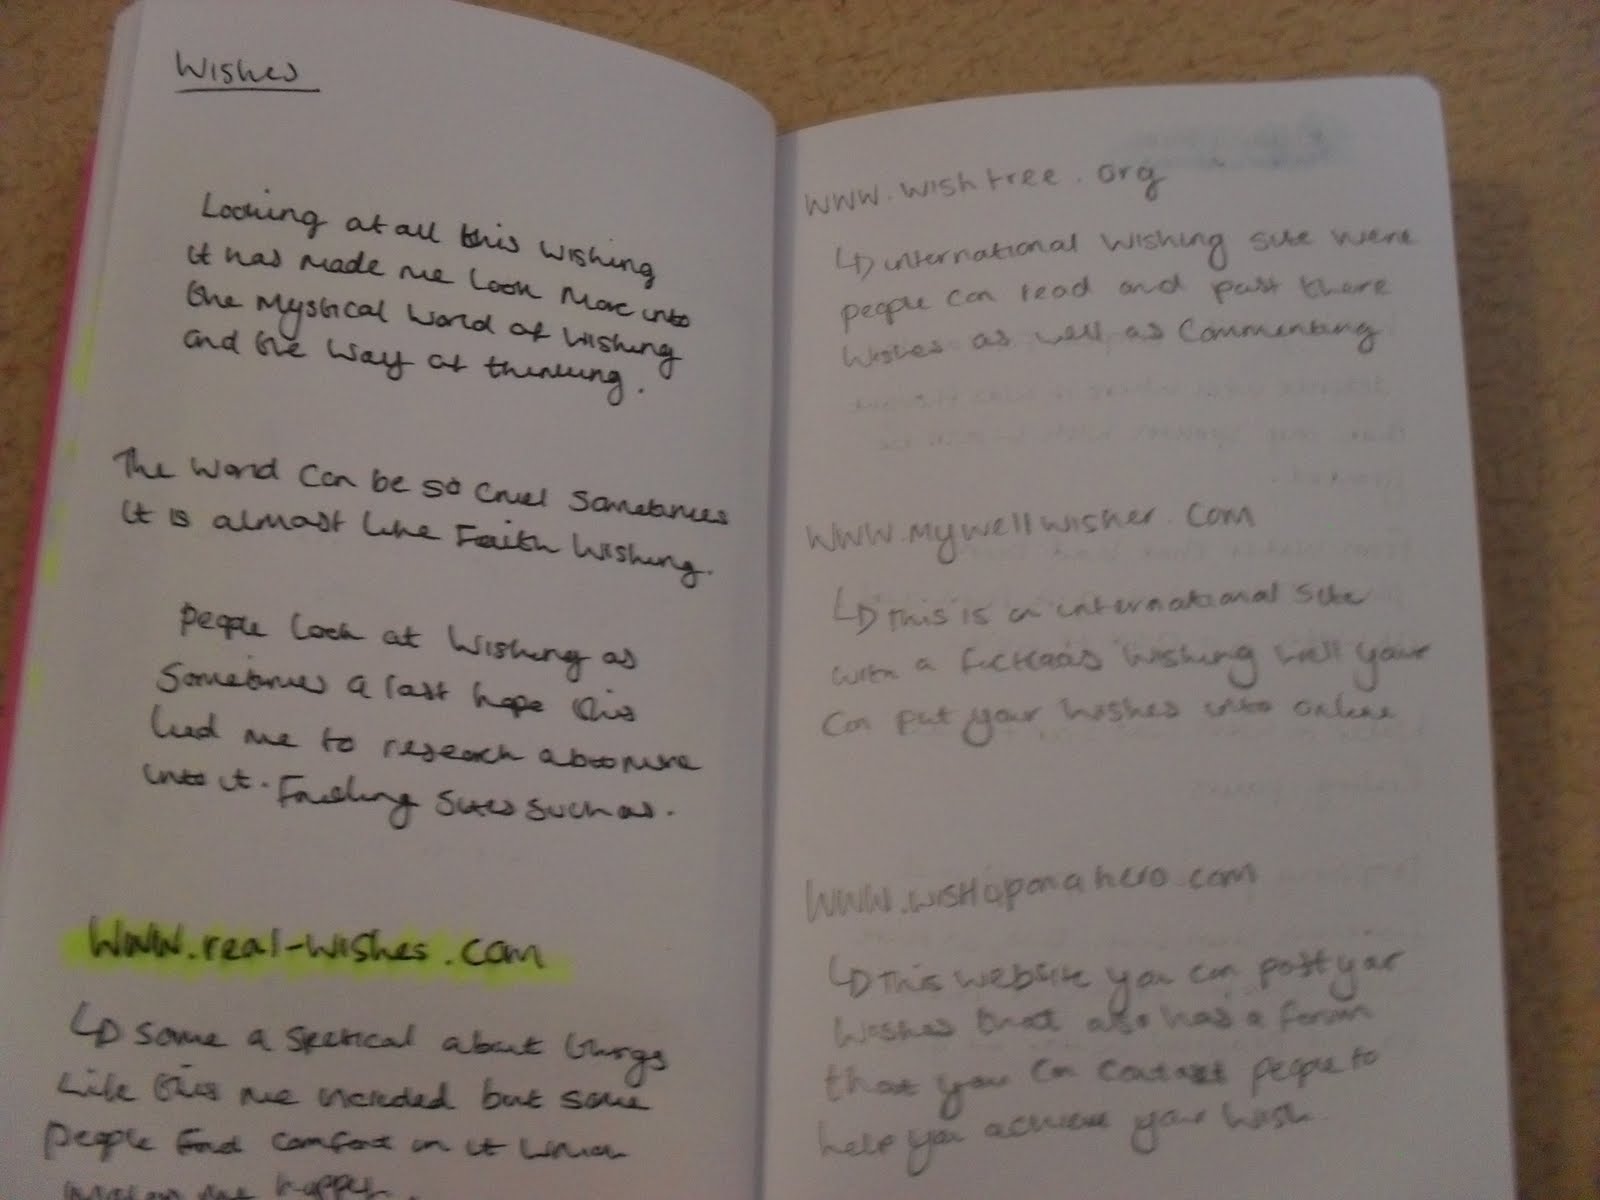 Wishes
Looking at all this wishing
it has made me look more into
the mystical world of wishing
and the way of thinking.
The world can be so cruel sometimes
it is almost like Faith wishing.
people look at wishing as
sometimes a last hope this
lead me to reseach abto more
into it. Finding sites such as.
www.real-wishes.com
↳ some a skeptical about things
like this me included but some
people find comfort in it which
makes me happy.
www.wishtree.org
↳ international wishing site were
people can read and post there
wishes as well as commenting
www.mywellwisher.com
↳ This is an international site
with a wishing well your
can put your wishes into online
www.wishuponahero.com
↳ This website you can post your
wishes that also has a forum
that you can contact people to
help you achieve your wish